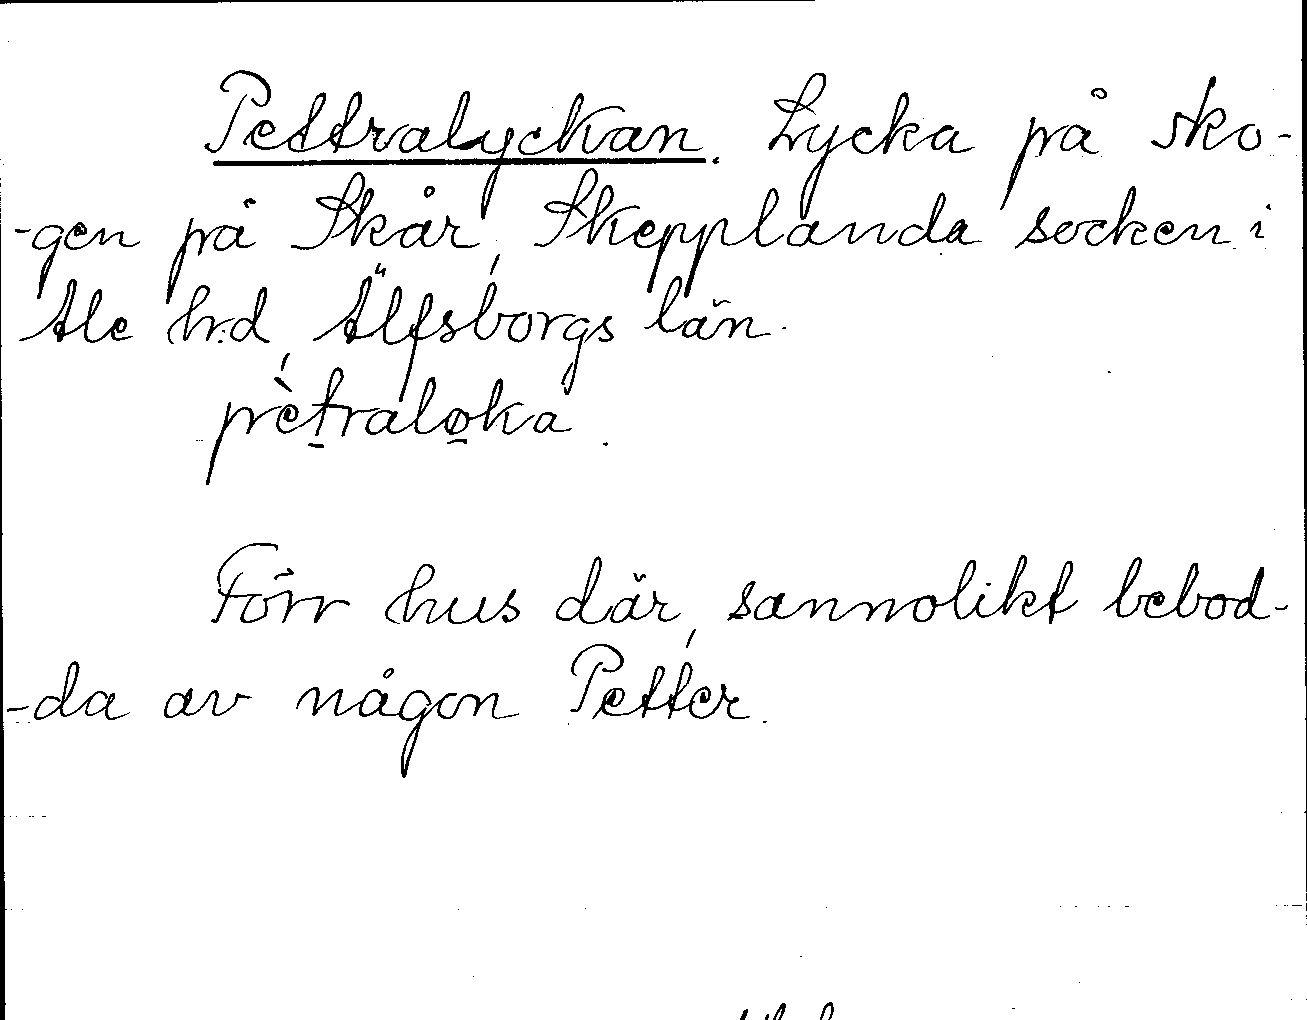 Pettralyckan. Lycka på sko-
-gen på Skår, Skepplanda socken i
Ale h:d, Älfsborgs län.
pètraløka.
Förr hus där, sannolikt bebod-
-da av någon Petter.